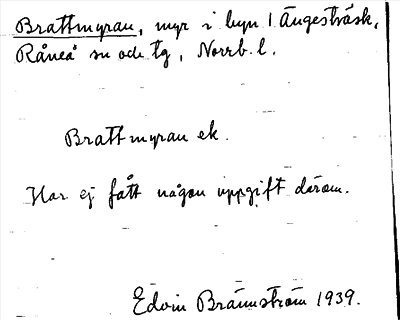 Brattmyran, myr i byn 1 Ängesträsk,
Råneå sn och tg, Norrb. l.
Brattmyran ek.
Har ej fått någon uppgift därom.
Edvin Brännström 1939.